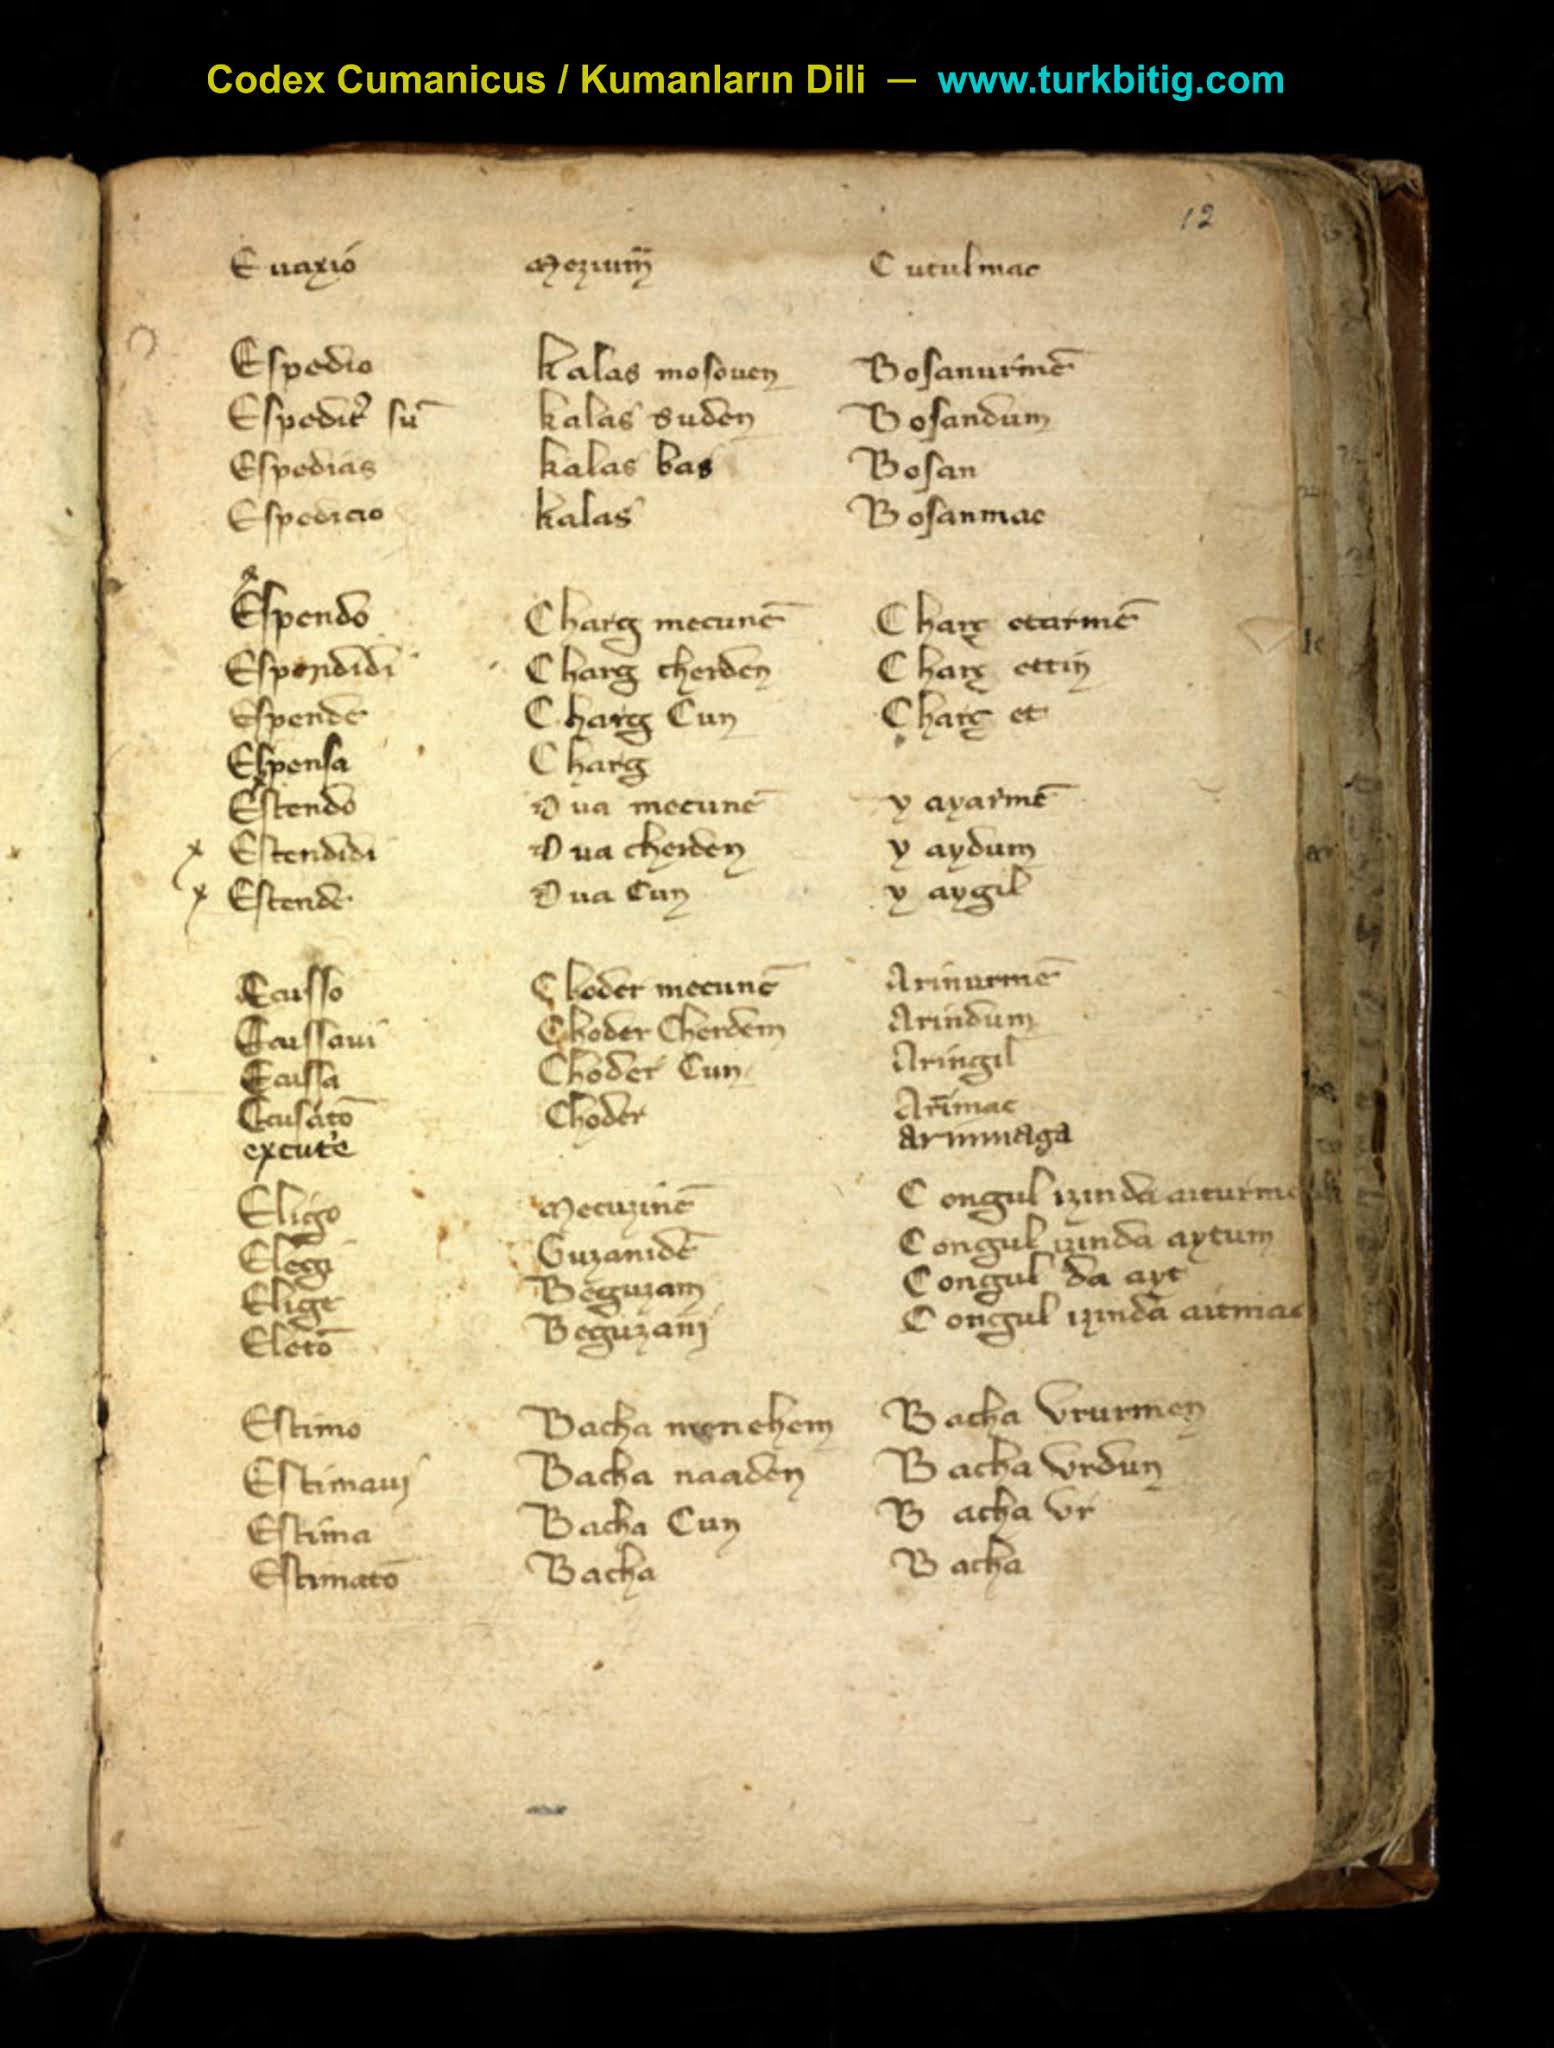 Codex Cumanicus / Kumanların Dili — www.turkbitig.com
12
Euaxió Cutulmac
Espedio kalas mosouen Bosanurmē
Espedit᾽ sū kalas suden Bosandum
Espedias kalas bas Bosan
Espedicio kalas Bosanmac
Espendo Charg mecunē Charç etarmē
Espendidi Charg cherden Charç ettin
Espende Charg Cun Charç et
Espensa Charg
Estendo Dua mecunē yayarmē
x Estendidi Dua cherden yaydum
x Estende Dua Cun yaygil
Ecusso Choder mecunē Arinurmē
Ecussaui Choder Cherdem Arindum
Ecussa Choder Cun Aringil
Ecusatō Choder Arīmac
excut᾽e arinmaga
Eligo Mecuzinē Congul izinda aiturme
Elegi Guzanidē Congul izinda aytum
Elige Beguzam Congul da ayt
Eletō Beguzani Congul izinda aitmac
Estimo Bacha menehem Bacha Vrurmen
Estimaui Bacha naaden Bacha Vrdun
Estima Bacha Cun Bacha Vr
Estimatō Bacha Bacha